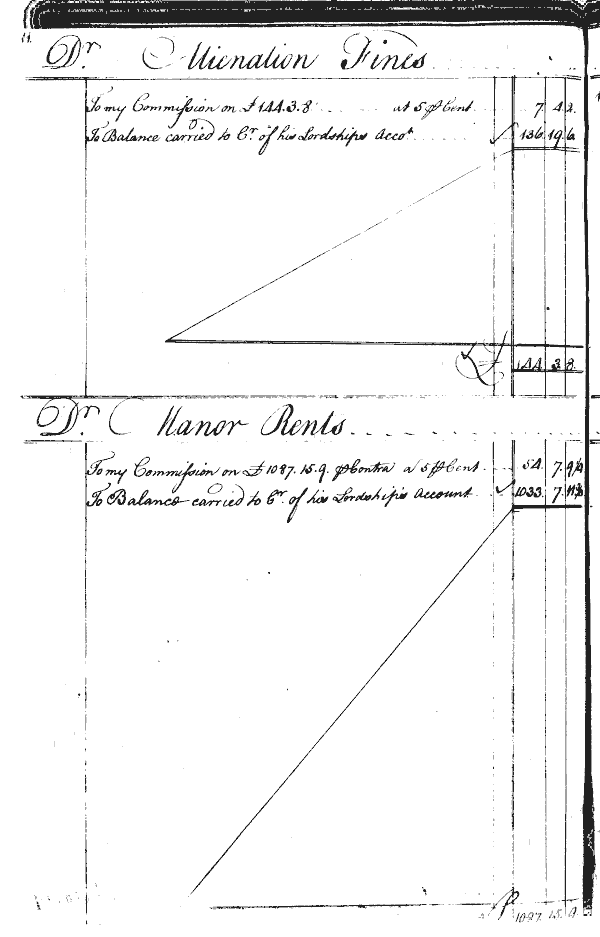 Dr Alienation Fines
To my Commission on £144.3.8 at 5 p Cent 7 4 2
To Balance carried to Cr of his Lordships Accot 136 19 6
£ 144 3 8
Dr Manor Rents
To my Commission on £1087.15.9 p Contra a 5 p Cent 54 7 9¼
To Balance carried to Cr of his Lordships Account 1033 7 11¾
1087 15 9